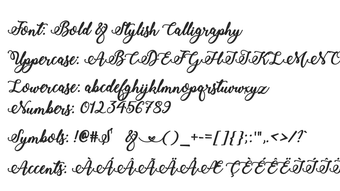 Font: Bold & Stylish Calligraphy
Uppercase: ABCDEFGHIJKLMNO
Lowercase: abcdefghijklmnopqrstuvwxyz
Numbers: 0123456789
Symbols: !@#$ &~()_+-=[]{};:'",.<>/?
Accents: ÀÁÂÃÄÅÆÇÈÉÊËÌÍÎ